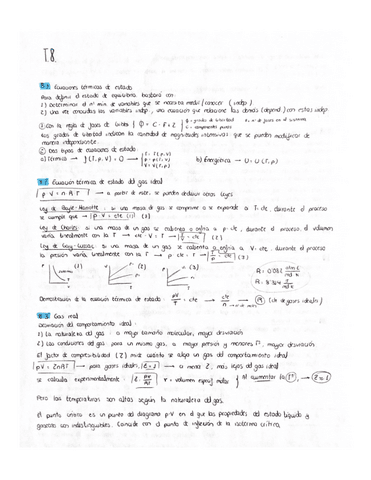 T.8.
Ecuaciones térmicas de estado
Para definir el estado de equilibrio bastará con
1) Determinar el nº min de variables que se necesita medir/conocer (indep.)
2) Una vez conocidas las variables indep, una ecuación que relacione las demás (depend) con estas indep.
con la regla de fases de Gibbs | Φ = C - F + 2 |
Los grados de libertad indican la cantidad de magnitudes intensivas que se pueden modificar de
manera independiente.
Dos tipos de ecuaciones de estado:
a) Térmica → f(T, p, V) = 0 → b) Energética → U = U(T, p)
Ecuación térmica de estado del gas ideal
p·V = n·R·T → a partir de aquí, se pueden deducir otras leyes
Ley de Boyle-Mariotte: si una masa de gas se comprime o se expande a T = cte, durante el proceso
se cumple que → p·V = cte (1)
Ley de Charles: si una masa de un gas se calienta o enfría a p = cte, durante el proceso el volumen
varía linealmente con la T → cte · V = T → (2)
Ley de Gay-Lussac: si una masa de un gas se calienta o enfría a V = cte, durante el proceso
la presión varía linealmente con la T → p · cte = T → (3)
(1) (2) (3)
R = 0.082 atm·L / mol·K
Demostración de la ecuación térmica de estado: pV/T = cte → cte/n → R (cte de gases ideales)
Gas real
Desviación del comportamiento ideal:
1) La naturaleza del gas: a mayor tamaño molecular, mayor desviación
2) Las condiciones del gas: para un mismo gas, a mayor presión y menores Tª, mayor desviación
El factor de compresibilidad (Z) mide cuánto se aleja un gas del comportamiento ideal
pV = ZnRT → para gases ideales, Z = 1 → a menor Z, más lejos del gas ideal
se calcula experimentalmente: Z = pV/RT v = volumen específ molar al aumentar la Tª, → Z = 1
Pero las temperaturas son altas según la naturaleza del gas.
El punto crítico es un punto del diagrama p-V en el que las propiedades del estado líquido y
gaseoso son indistinguibles. Coincide con el punto de inflexión de la isoterma crítica.